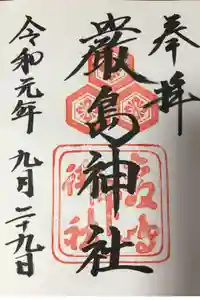 奉拝
嚴島神社
嚴島神社
令和元年九月二十九日